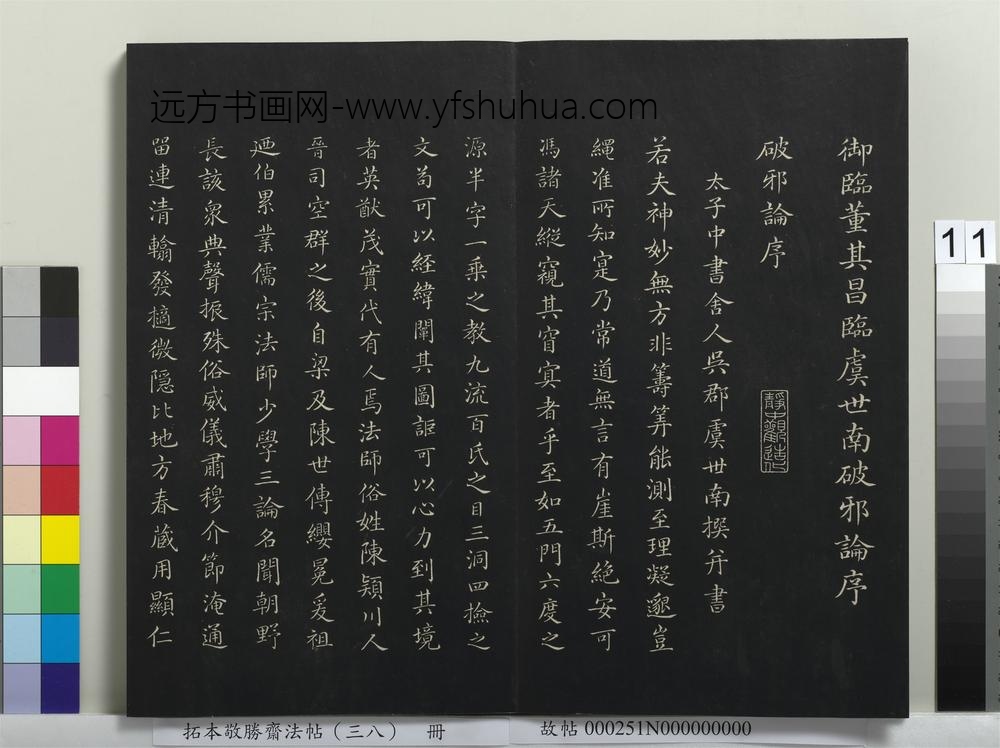 御臨董其昌臨虞世南破邪論序
破邪論序
太子中書舍人吳郡虞世南撰并書
若夫神妙無方非籌筭能測至理凝邈豈
繩准所知寔乃常道無言有崖斯絶安可
馮諸天縱窺其窅寘者乎至如五門六度之
源半字一乘之教九流百氏之目三洞四撿之
文苟可以經緯闡其圖詎可以心力到其境
者英猷茂實代有人焉法師俗姓陳潁川人
晉司空群之後自梁及陳世傳纓冕爰祖
廼伯累業儒宗法師少學三論名聞朝野
長該衆典聲振殊俗威儀肅穆介節淹通
留連清翰發擿微隱比地方春蔵用顯仁
靜中觀造化
远方书画网-www.yfshuhua.com
11
拓本敬勝齋法帖（三八） 冊
故帖 000251N000000000